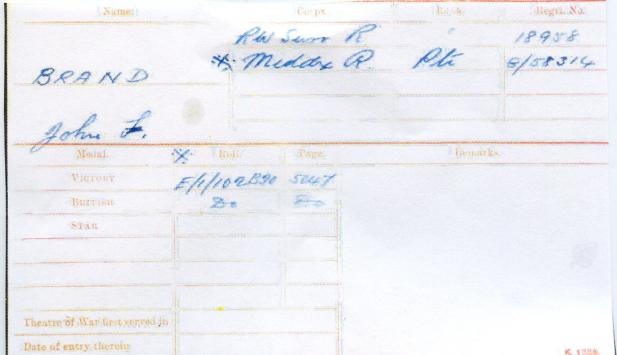 Name. Corps. Rank. Regtl. No.
RW Surr R " 18958
BRAND * Middx R. Pte G/58314
John F.
Medal. * Roll. Page. Remarks.
VICTORY E/1/102B90 5447
BRITISH Do Do
STAR
Theatre of War first served in
Date of entry therein
K. 1380.